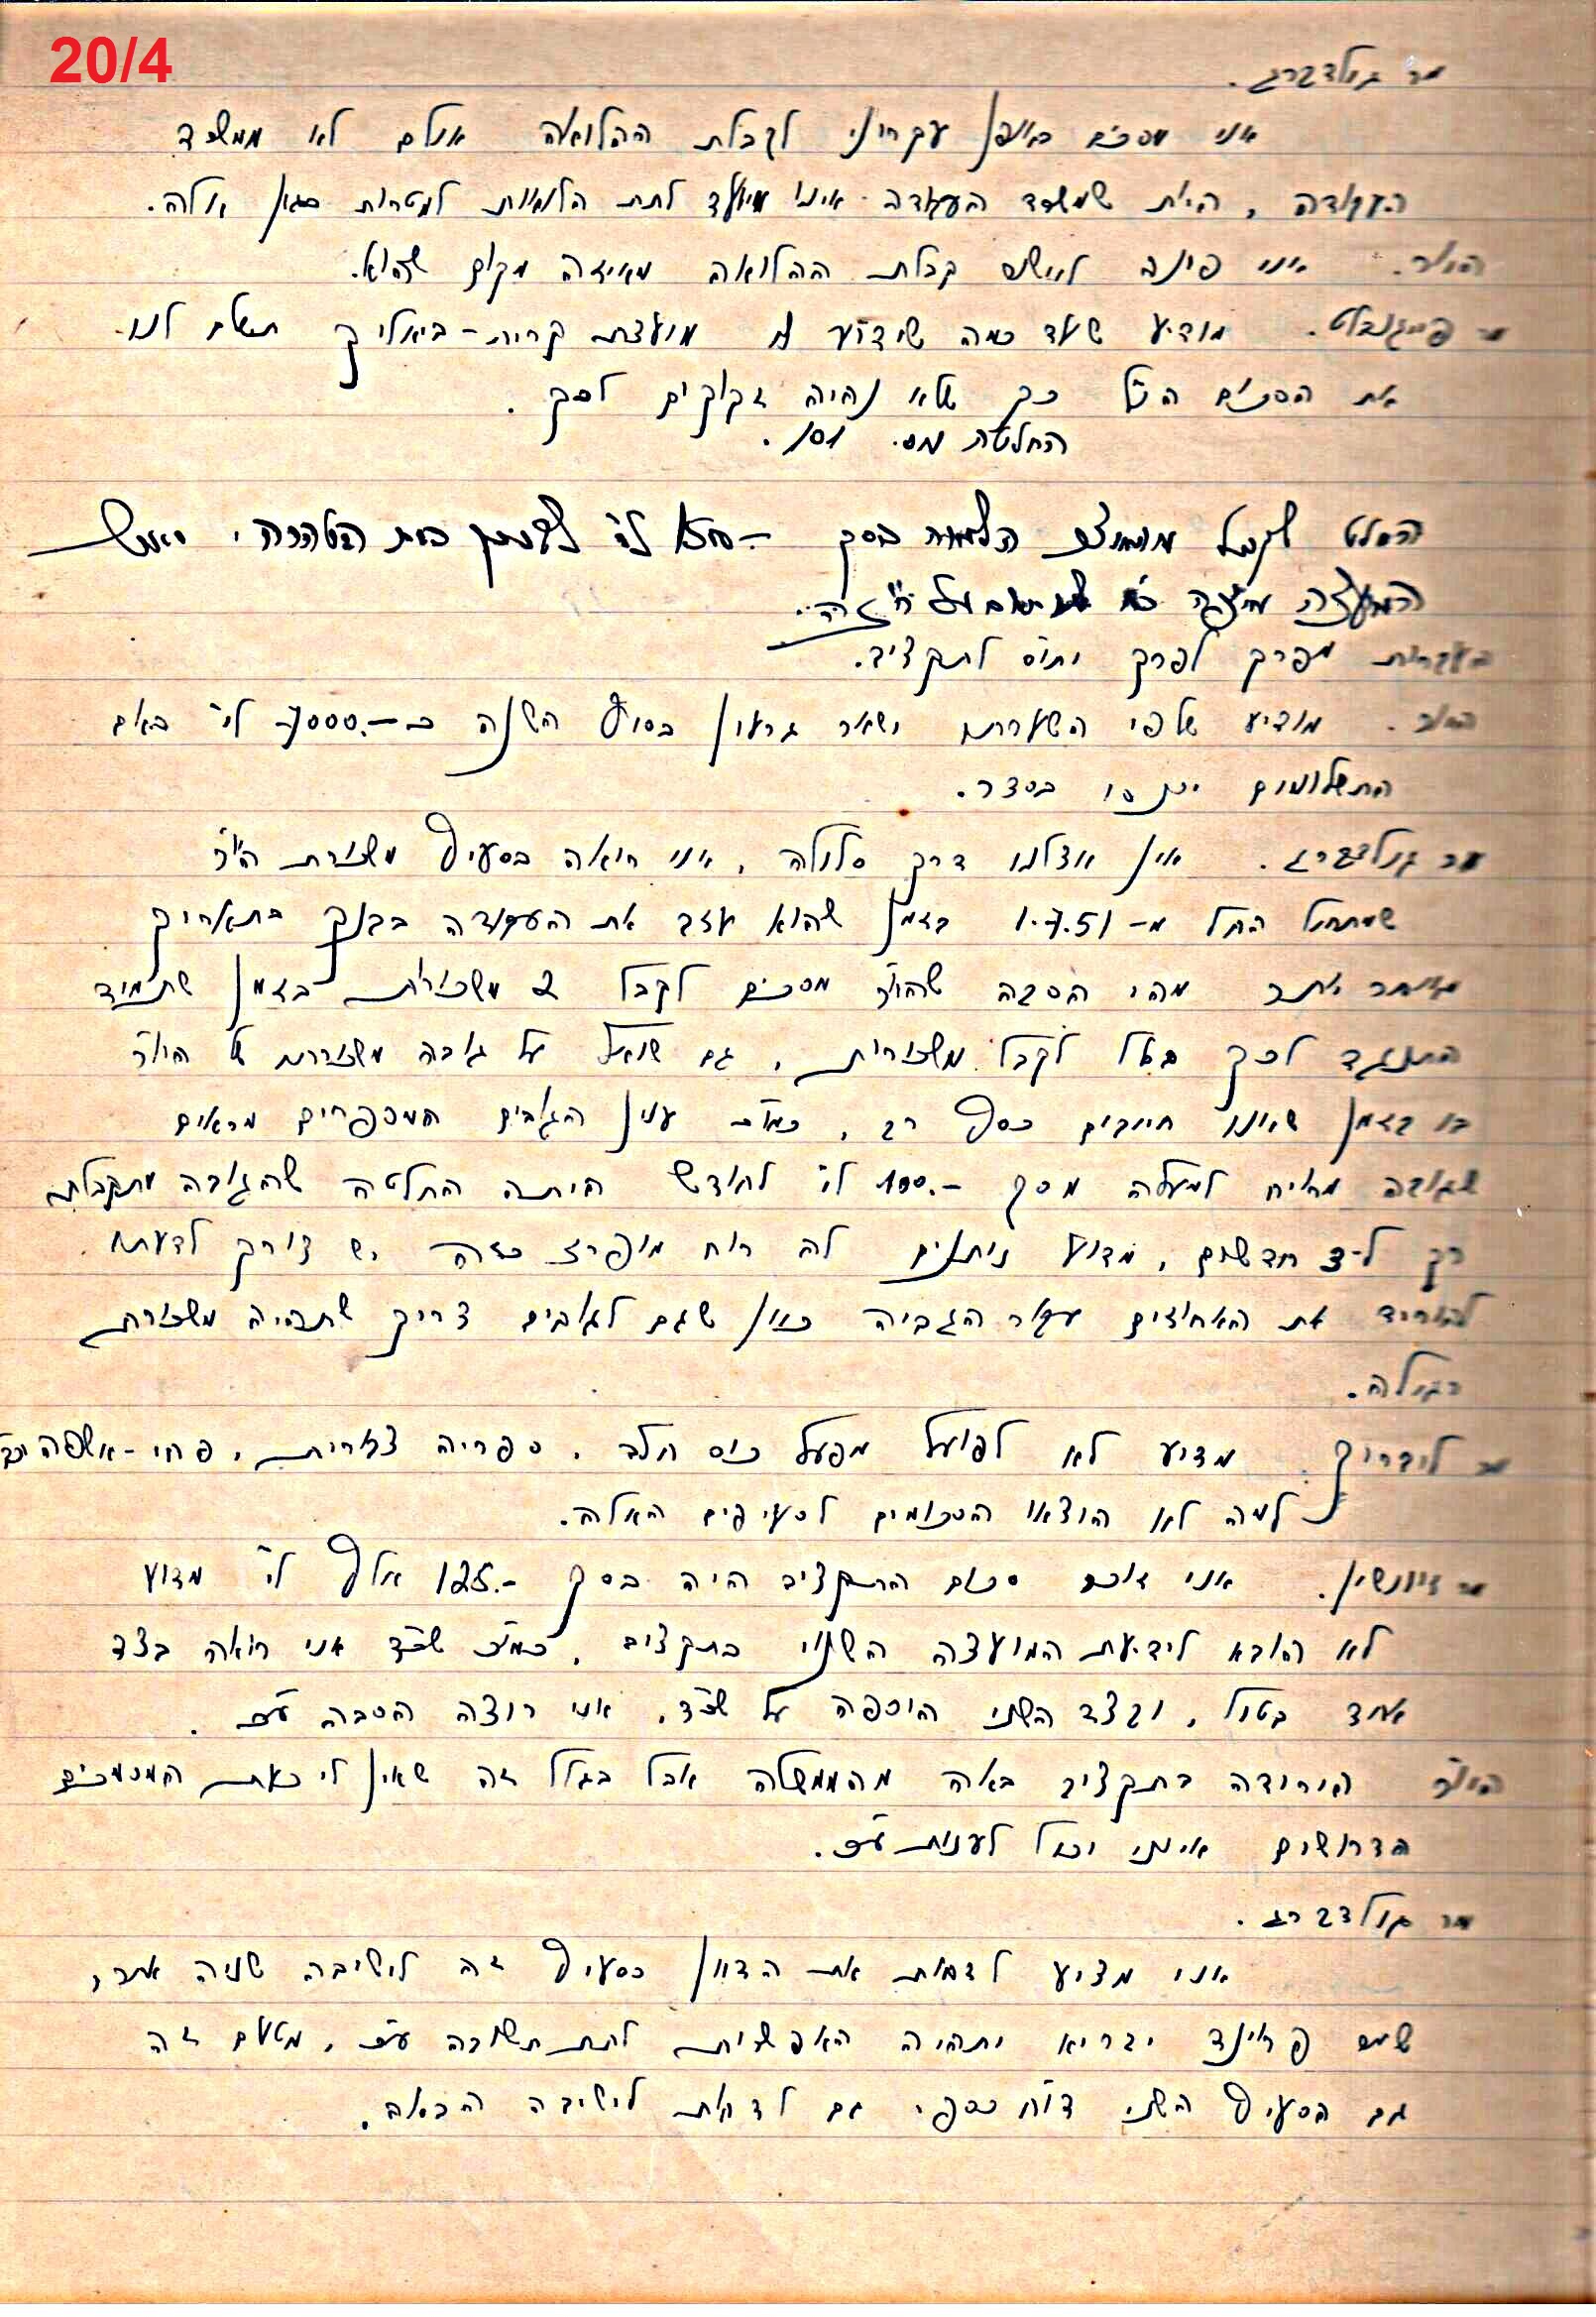 20/4
מר גולדברג.
אני מסכים באופן עקרוני לקבלת ההלואה אולם לא ממשרד
העבודה, היות שמשרד העבודה אינו מיועד לתת הלואות למטרות כגון אלה.
היו"ר. אינו פונה לשם קבלת ההלואה מאיזה מקום שהוא.
מר פיינגולט. מודיע שעד כמה שידוע לו מועצת קרית-ביאליק תשלם לנו
את הסכום הנ"ל כך שלא נהיה זקוקים לכך.
החלטה מס. 101.
הוחלט לקבל הלואה בסך
המועצה
העברות מפרק לפרק ותוס' לתקציב.
היו"ר. מודיע שלפי השערתו ישאר גרעון בסוף השנה כ-7000.- ל"י באם
התשלומים יכנסו כסדר.
מר גולדברג. אין אצלנו דרך סלולה, אני רואה בסעיף משכורת היו"ר
שמתחיל החל מ-1.7.51 בזמן שהוא עזב את העבודה בבנק בתאריך
מאוחר יותר מהי הסבה שהיו"ר מסכים לקבל 2 משכורות בזמן שתמיד
התנגד לכך בכלל לקבל משכורות, גם שואל על גובה משכורת של היו"ר
בו בזמן שאנו חייבים כסף רב, כמו"כ ענין הגובים המספרים מראים
שגובה מרויח למעלה מסך 100.- ל"י לחודש היתה החלטה שהגובה מתקבלת
רק ל-3 חדשים, מדוע נותנים לה רוח מופרז כזה יש צורך לדעתו
להוריד את האחוזים עבור הגביה כיון שגם לגובים צריך שתהיה משכורת
רגילה.
מר ליבריך. מדוע לא לפועל מפעל כוס חלב, ספריה צבורית, פחי-אשפה וכו'
למה לא הוצאו הסכומים לסעיפים האלה.
מר זיונשין. אני זוכר סכום התקציב היה בסך 125.- אלף ל"י מדוע
לא הובא לידיעת המועצה השנוי בתקציב, כמו"כ שכ"ד אני רואה בצד
אחד בטול, ובצד השני הוספה על שכ"ד, אני רוצה הסברה ע"כ.
היו"ר הירודה בתקציב באה מהממשלה אבל בגלל זה שאין לי כעת המסמכים
הדרושים אינני יכול לענות ע"כ.
מר גולדברג.
אני מציע לדחות את הדיון בסעיף זה לישיבה שניה אחרי
שמר פריינד יבריא ותהיה האפשרות לתת תשובה ע"כ, מטעם זה
גם הסעיף השני דו"ח כספי גם לדחות לישיבה הבאה.